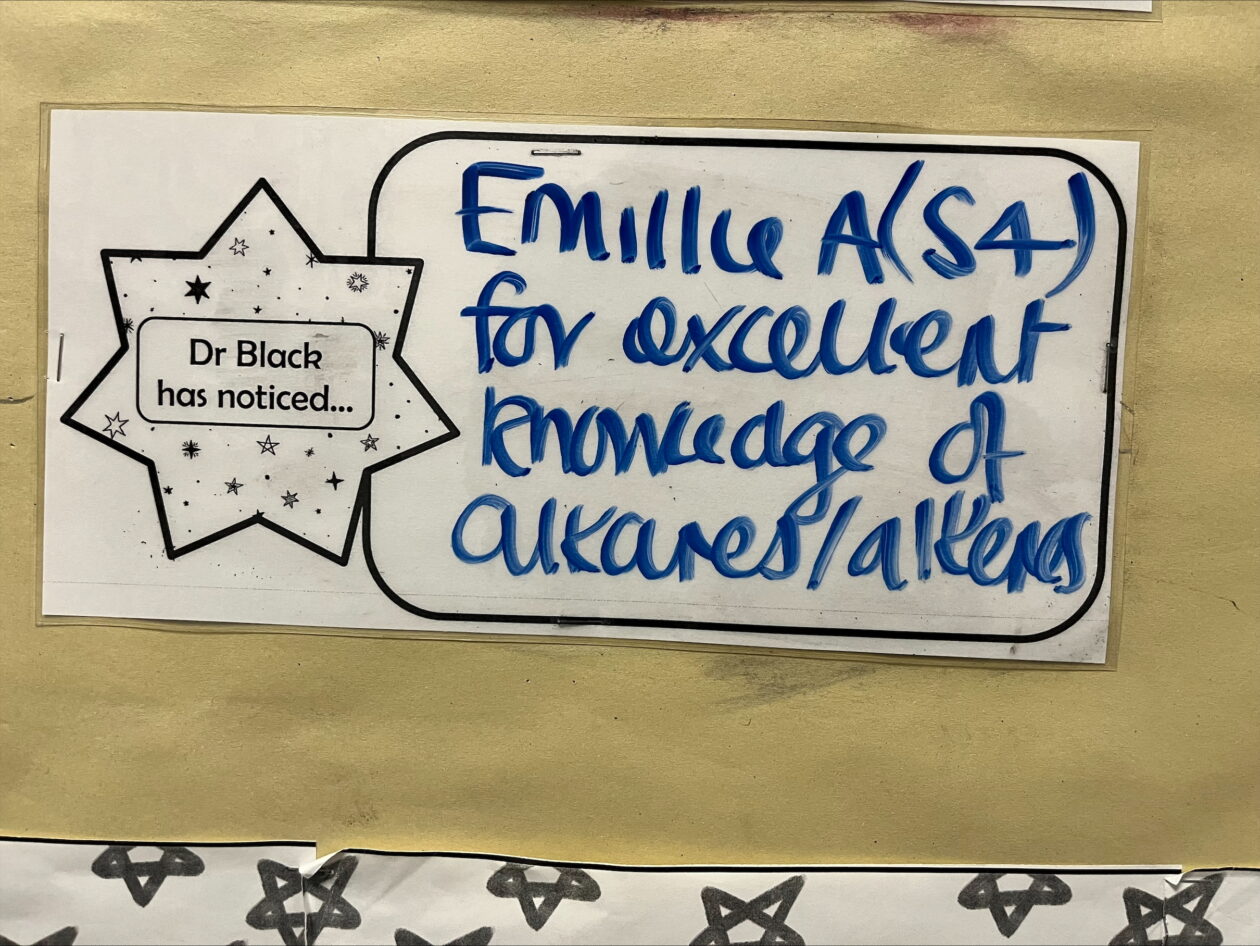 Dr Black
has noticed...
Emillie A (S4)
for excellent
knowledge of
alkanes/alkenes